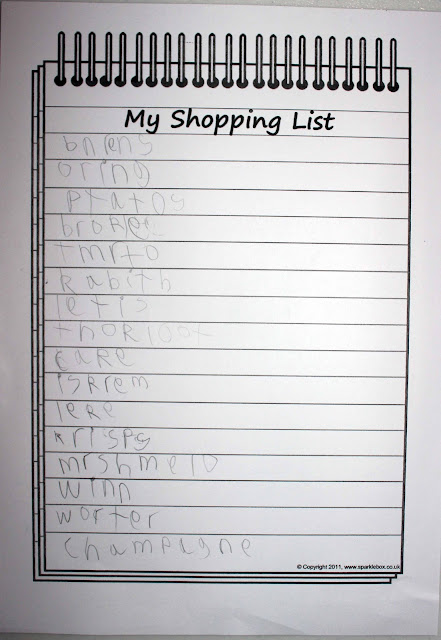 My Shopping List
bnrens
oring
ptatos
brokel
tmrto
Rabith
letis
thoRloot
caRe
isRrem
leRe
krisps
mrshmelo
winn
worter
champagne
© Copyright 2011, www.sparklebox.co.uk